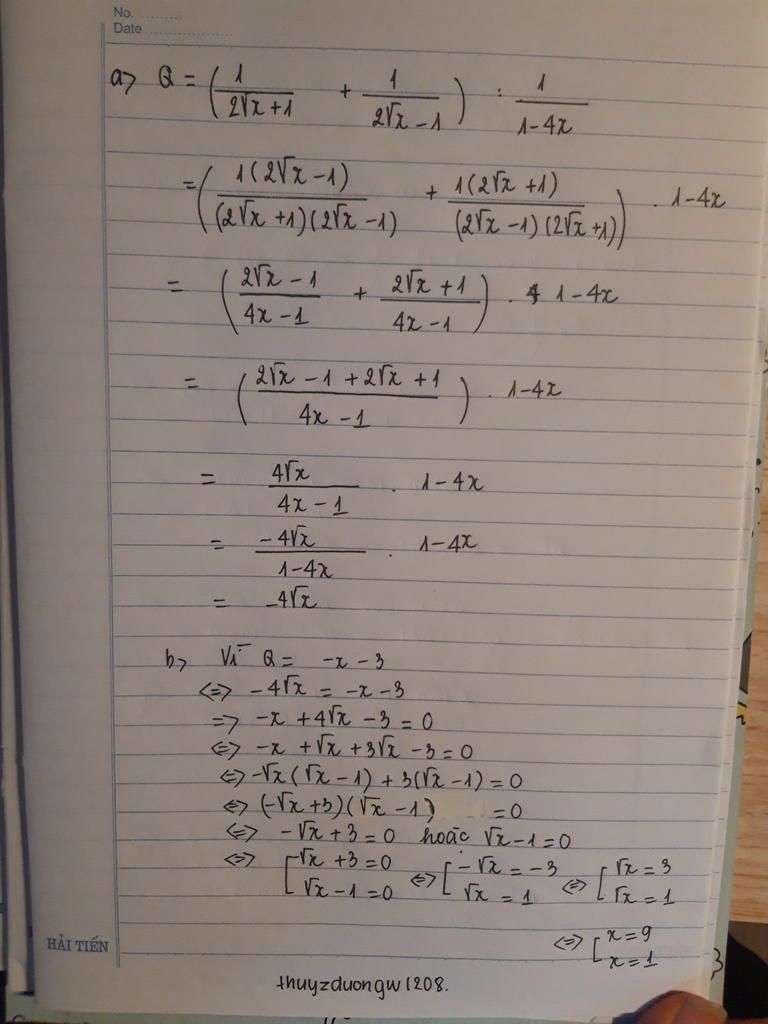 No. ..........
Date ......................
a> Q = (1/(2√x+1) + 1/(2√x-1)) : 1/(1-4x)
= (1(2√x-1)/((2√x+1)(2√x-1)) + 1(2√x+1)/((2√x-1)(2√x+1))) . 1-4x
= ((2√x-1)/(4x-1) + (2√x+1)/(4x-1)) . 1-4x
= ((2√x-1+2√x+1)/(4x-1)) . 1-4x
= 4√x/(4x-1) . 1-4x
= -4√x/(1-4x) . 1-4x
= -4√x
b> Vì Q = -x-3
<=> -4√x = -x-3
=> -x+4√x-3=0
<=> -x+√x+3√x-3=0
<=> -√x(√x-1)+3(√x-1)=0
<=> (-√x+3)(√x-1) =0
<=> -√x+3=0 hoặc √x-1=0
<=> [-√x+3=0 <=> [-√x=-3 <=> [√x=3
√x-1=0 √x=1 √x=1
<=> [x=9
x=1
HẢI TIẾN
thuyzduongw1208.